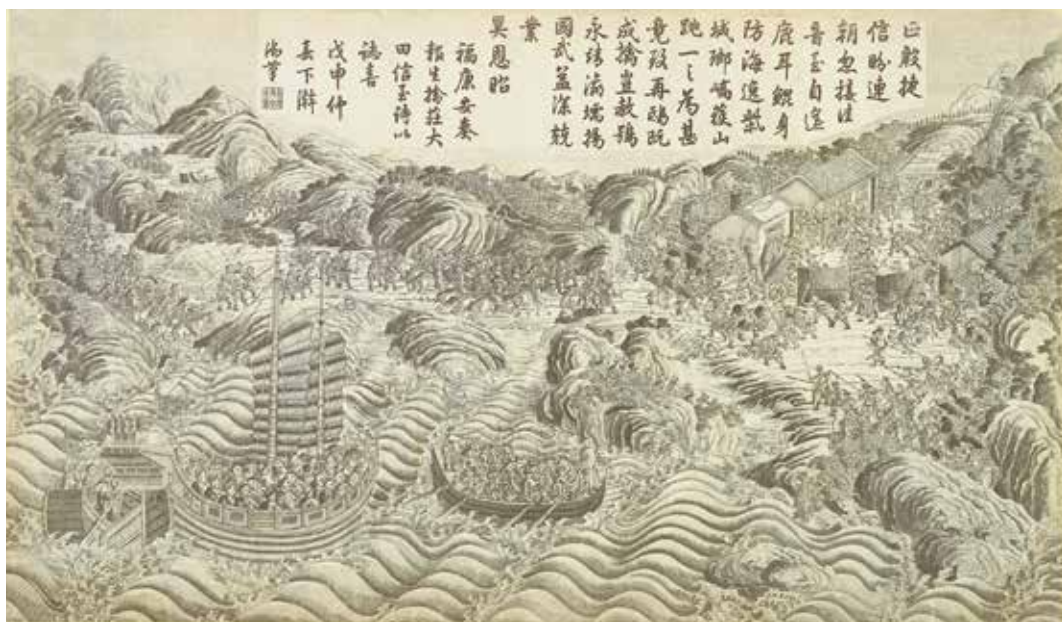 正殷捷
信盼連
朝忽接佳
音至自遙
鹿耳鯤身
防海逸柴
城瑯嶠獲山
跳一之為甚
竟致再鴟既
成擒豈教鴞
永靖瀛壖揚
國武益深兢
業
昊恩昭
福康安奏
報生擒莊大
田信至詩以
誌喜
戊申仲
春下澣
御筆